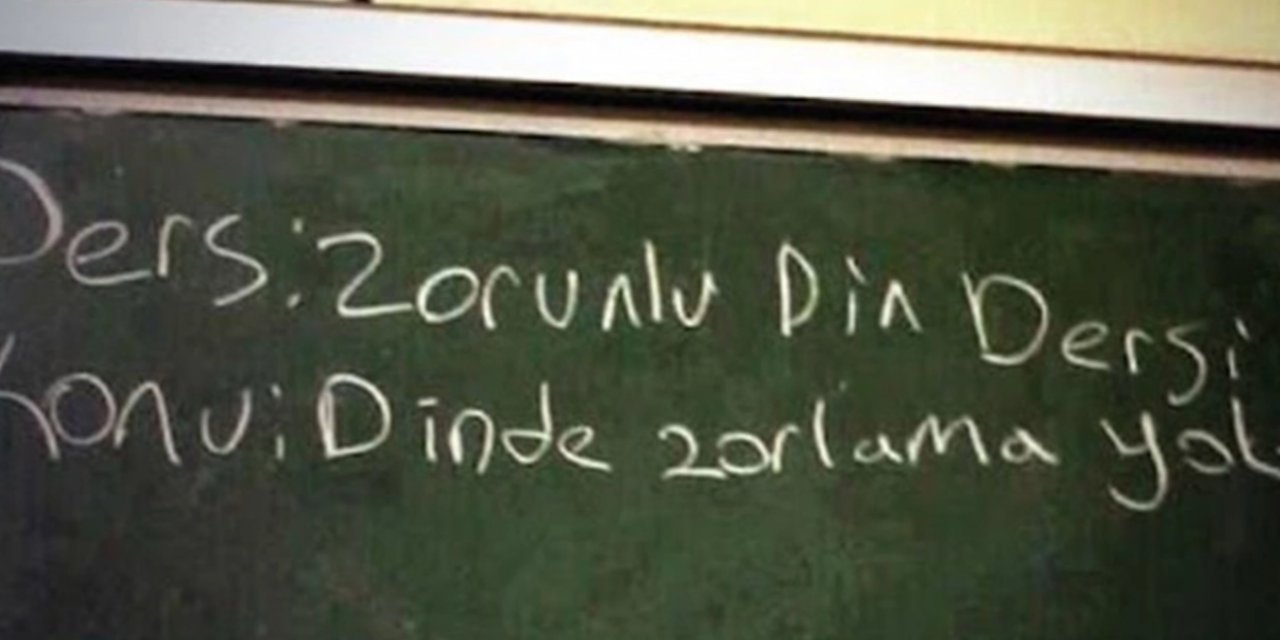 Ders: Zorunlu Din Dersi
Konu: Dinde zorlama yok